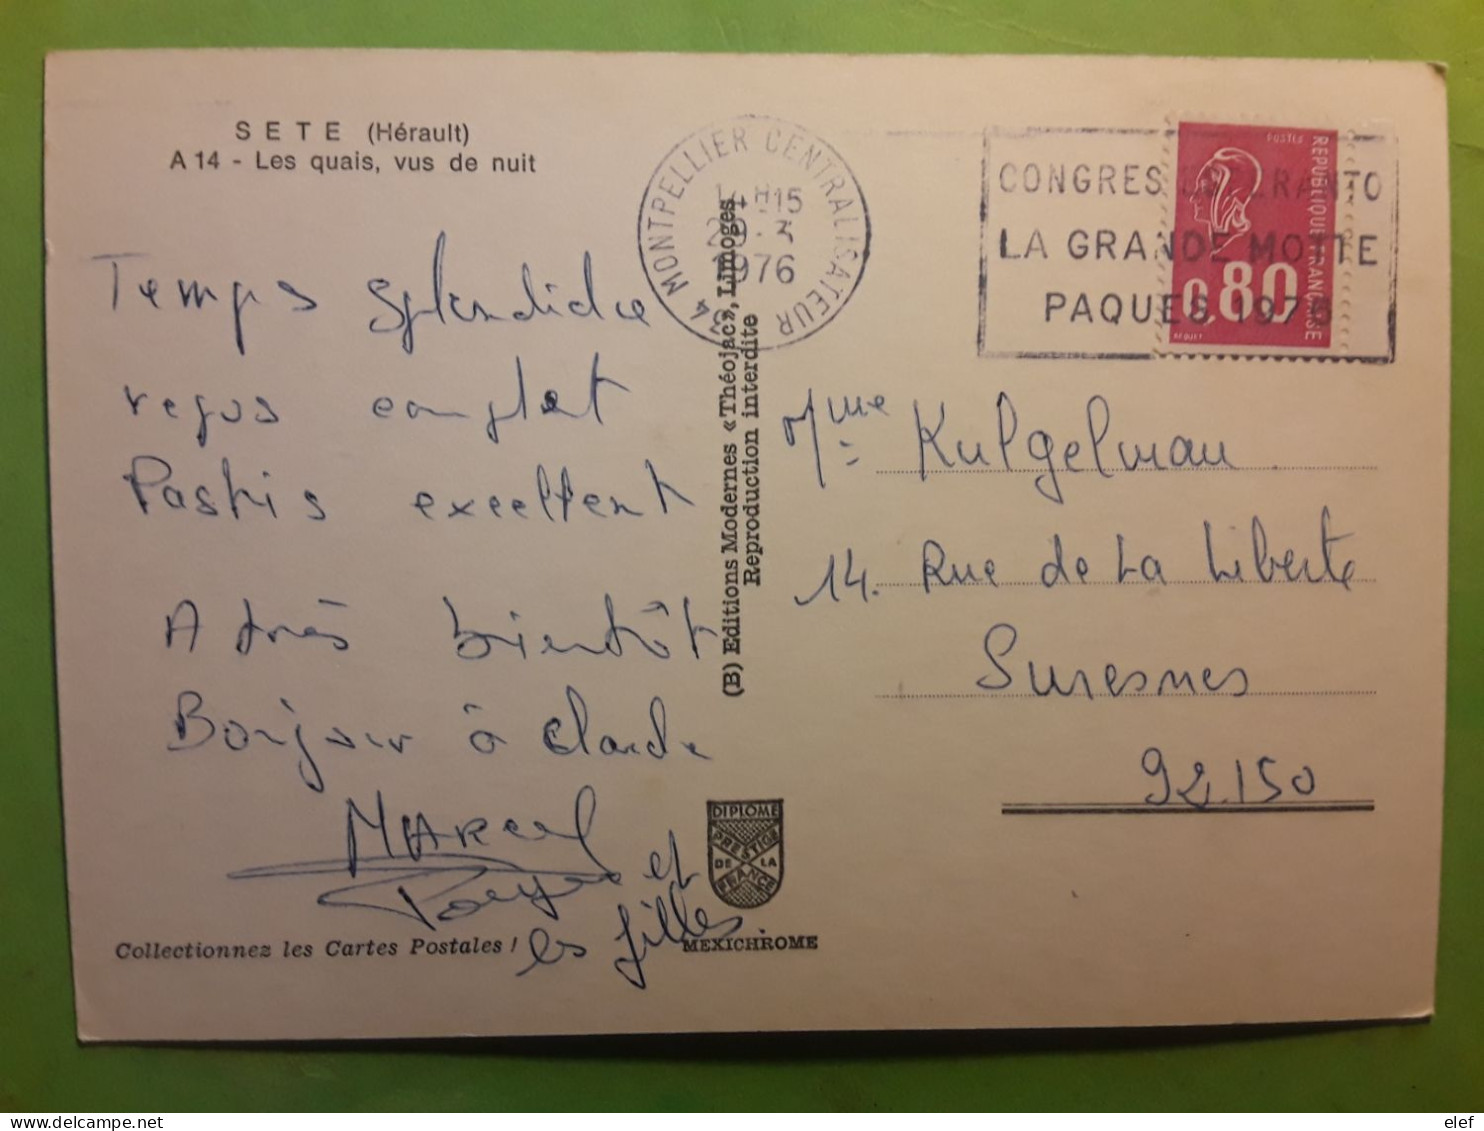 SETE (Hérault)
A 14 - Les quais, vus de nuit
Temps splendide
repos complet
Pastis excellent
A très bientôt
Bonjour à Claude
MARCEL
et
les filles.
Collectionnez les Cartes Postales !
(B) Editions Modernes «Théojac», Limoges
Reproduction interdite
DIPLOME
PRESTIGE
DE LA
FRANCE
MEXICHROME
34 MONTPELLIER CENTRALISATEUR
1976
CONGRES ESPERANTO
LA GRANDE MOTTE
PAQUES 1976
POSTES
REPUBLIQUE FRANÇAISE
0,80
BEQUET
Mme Kulgelman
14. Rue de La Liberte
Suresnes
92.150
elef